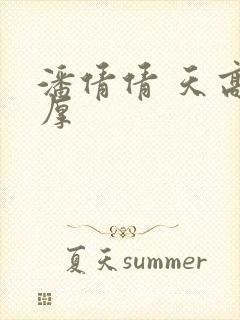 潘倩倩 天高
厚
夏天summer